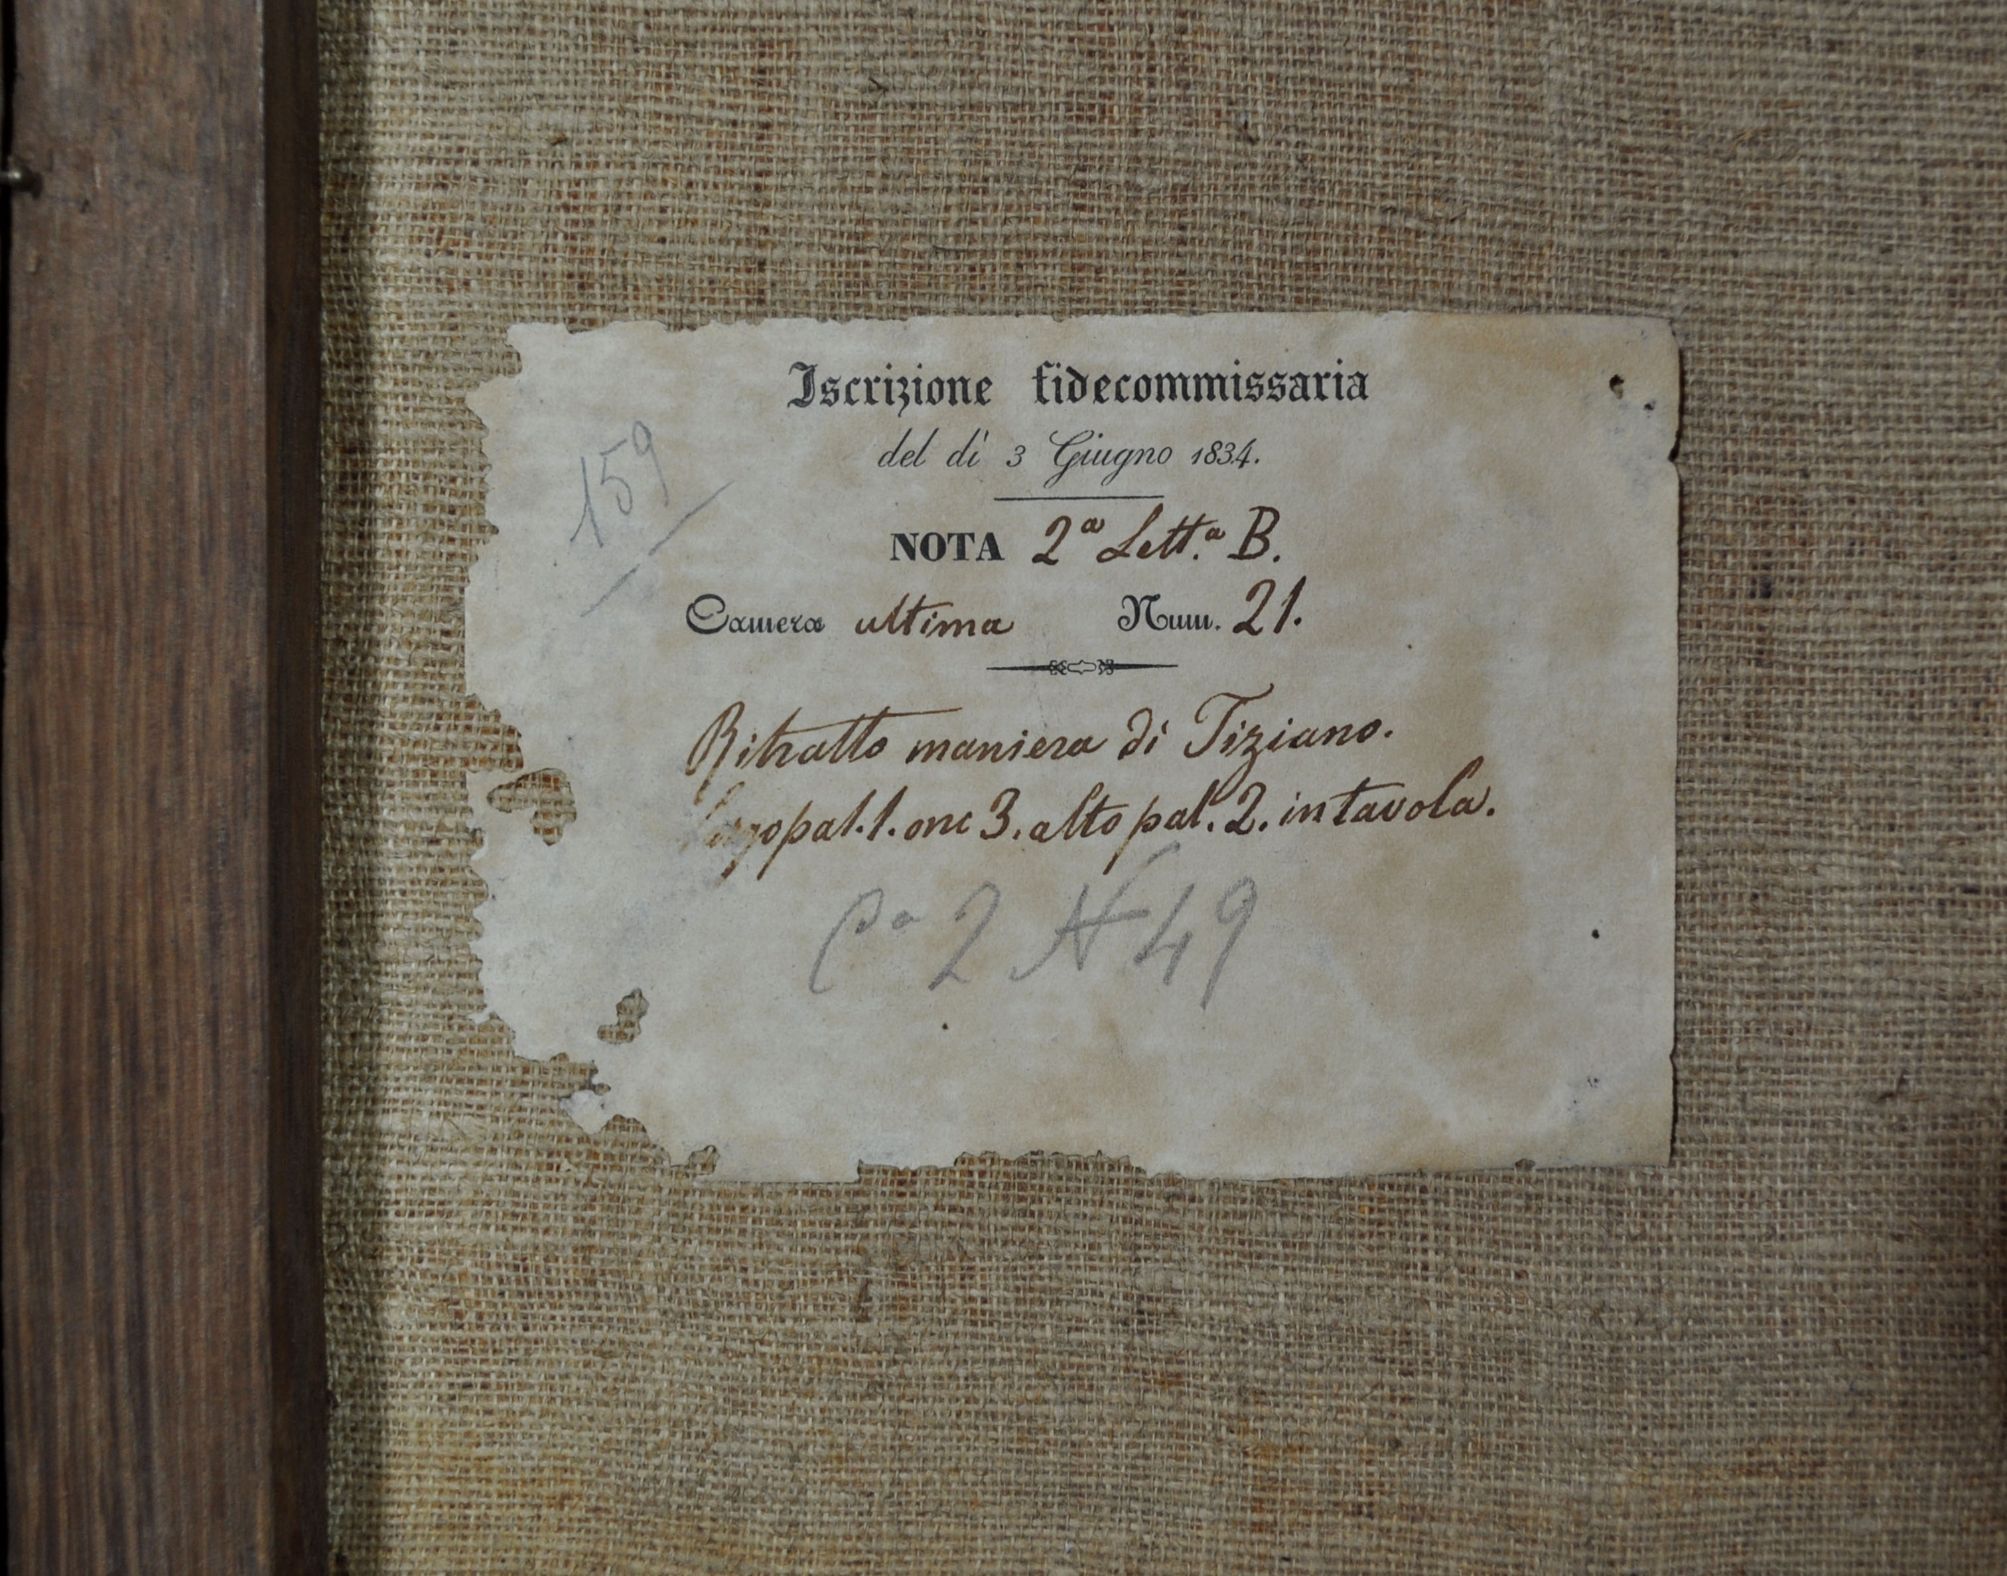 Iscrizione fidecommissaria
del dì 3 Giugno 1834.
159
NOTA 2ª Lett.ª B.
Camera ultima Num. 21.
Ritratto maniera di Tiziano.
largo pal. 1. onc 3. alto pal. 2. in tavola.
2 N 49